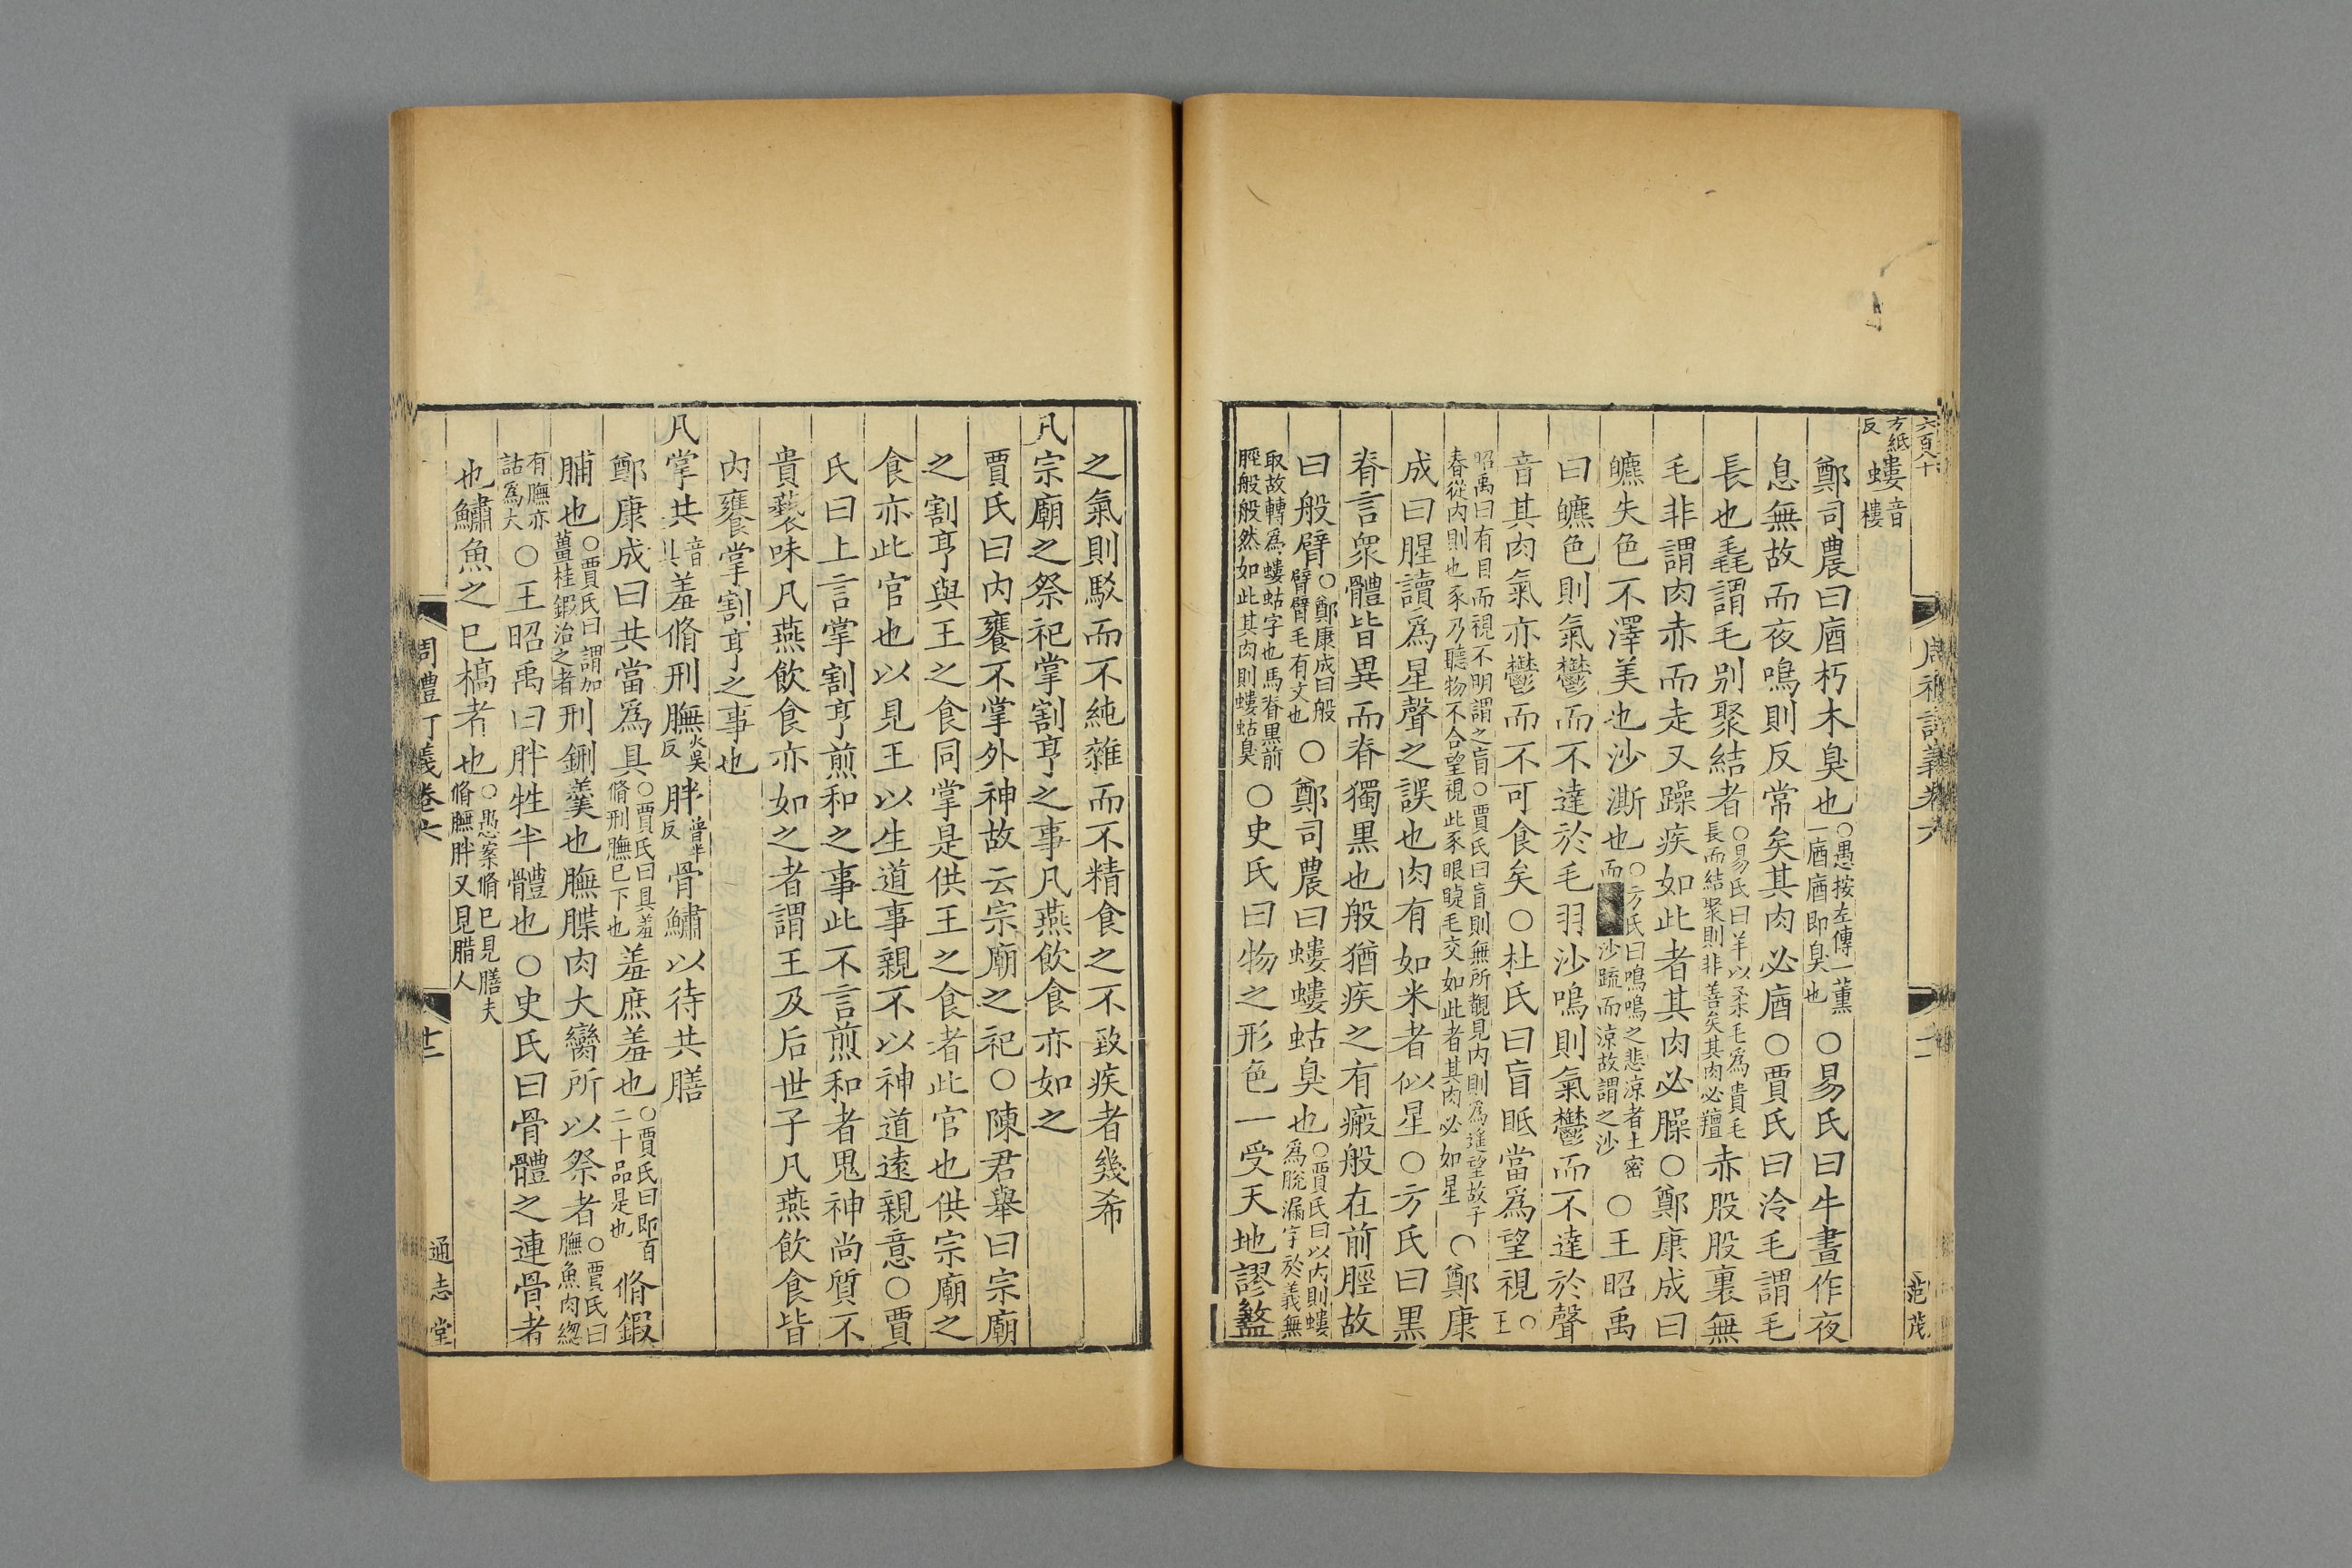 六百八十
周禮訂義卷六
范茂
方紙反螻音樓
鄭司農曰庮朽木臭也○愚按左傳一薰一庮庮即臭也○易氏曰牛晝作夜
息無故而夜鳴則反常矣其肉必庮○賈氏曰泠毛謂毛
長也毳謂毛别聚結者○易氏曰羊以柔毛爲貴毛長而結聚則非善矣其肉必羶赤股股裏無
毛非謂肉赤而走又躁疾如此者其肉必臊○鄭康成曰
皫失色不澤美也沙澌也○方氏曰鳴鳴之悲涼者土密而沙䟽而涼故謂之沙○王昭禹
曰皫色則氣鬱而不達於毛羽沙鳴則氣鬱而不達於聲
音其肉氣亦鬱而不可食矣○杜氏曰盲眡當爲望視○王
昭禹曰有目而視不明謂之盲○賈氏曰盲則無所覩見内則爲遙望故于春從内則也豕乃聽物不合望視此豕眼睫毛交如此者其肉必如星○鄭康
成曰腥讀爲星聲之誤也肉有如米者似星○方氏曰黑
脊言衆體皆異而脊獨黑也般猶疾之有瘢般在前脛故
曰般臂○鄭康成曰般臂臂毛有文也○鄭司農曰螻螻蛄臭也○賈氏曰以内則螻爲脫漏字於義無
取故轉爲螻蛄字也馬脊黑前脛般般然如此其肉則螻蛄臭○史氏曰物之形色一受天地謬盭
之氣則駁而不純雜而不精食之不致疾者幾希
凡宗廟之祭祀掌割亨之事凡燕飲食亦如之
賈氏曰内饔不掌外神故云宗廟之祀○陳君舉曰宗廟
之割亨與王之食同掌是供王之食者此官也供宗廟之
食亦此官也以見王以生道事親不以神道遠親意○賈
氏曰上言掌割亨煎和之事此不言煎和者鬼神尚質不
貴䙝味凡燕飲食亦如之者謂王及后世子凡燕飲食皆
内饔掌割亨之事也
凡掌共音具羞脩刑膴火吳反胖普半反骨鱐以待共膳
鄭康成曰共當爲具○賈氏曰具羞脩刑膴已下也羞庶羞也○賈氏曰即百二十品是也脩鍜
脯也○賈氏曰謂加薑桂鍜治之者刑鉶羹也膴䐑肉大臠所以祭者○賈氏曰膴魚肉緫
有膴亦詁爲大○王昭禹曰胖牲半體也○史氏曰骨體之連骨者
也鱐魚之已槁者也○愚案脩已見膳夫脩膴胖又見腊人
周禮訂義卷六
十二
通志堂